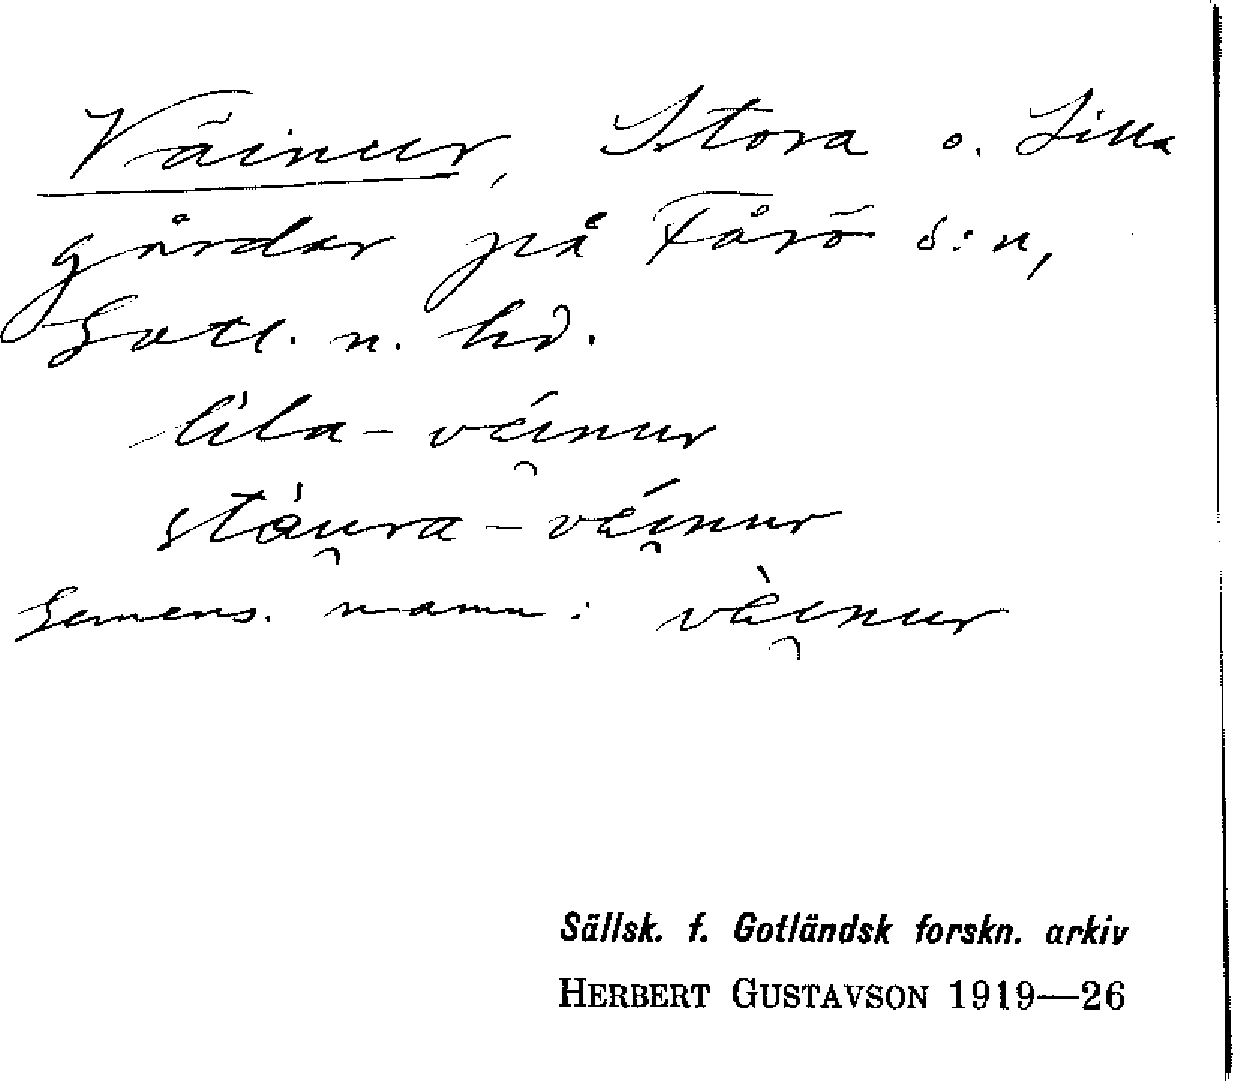 Väinur, Stora o. Lilla
gårdar på Fårö s:n,
Gotl. n. hd.
lila-véi̯nur
stàu̯ra-véi̯nur
Gemens. namn: vèi̯nur
Sällsk. f. Gotländsk forskn. arkiv
HERBERT GUSTAVSON 1919—26